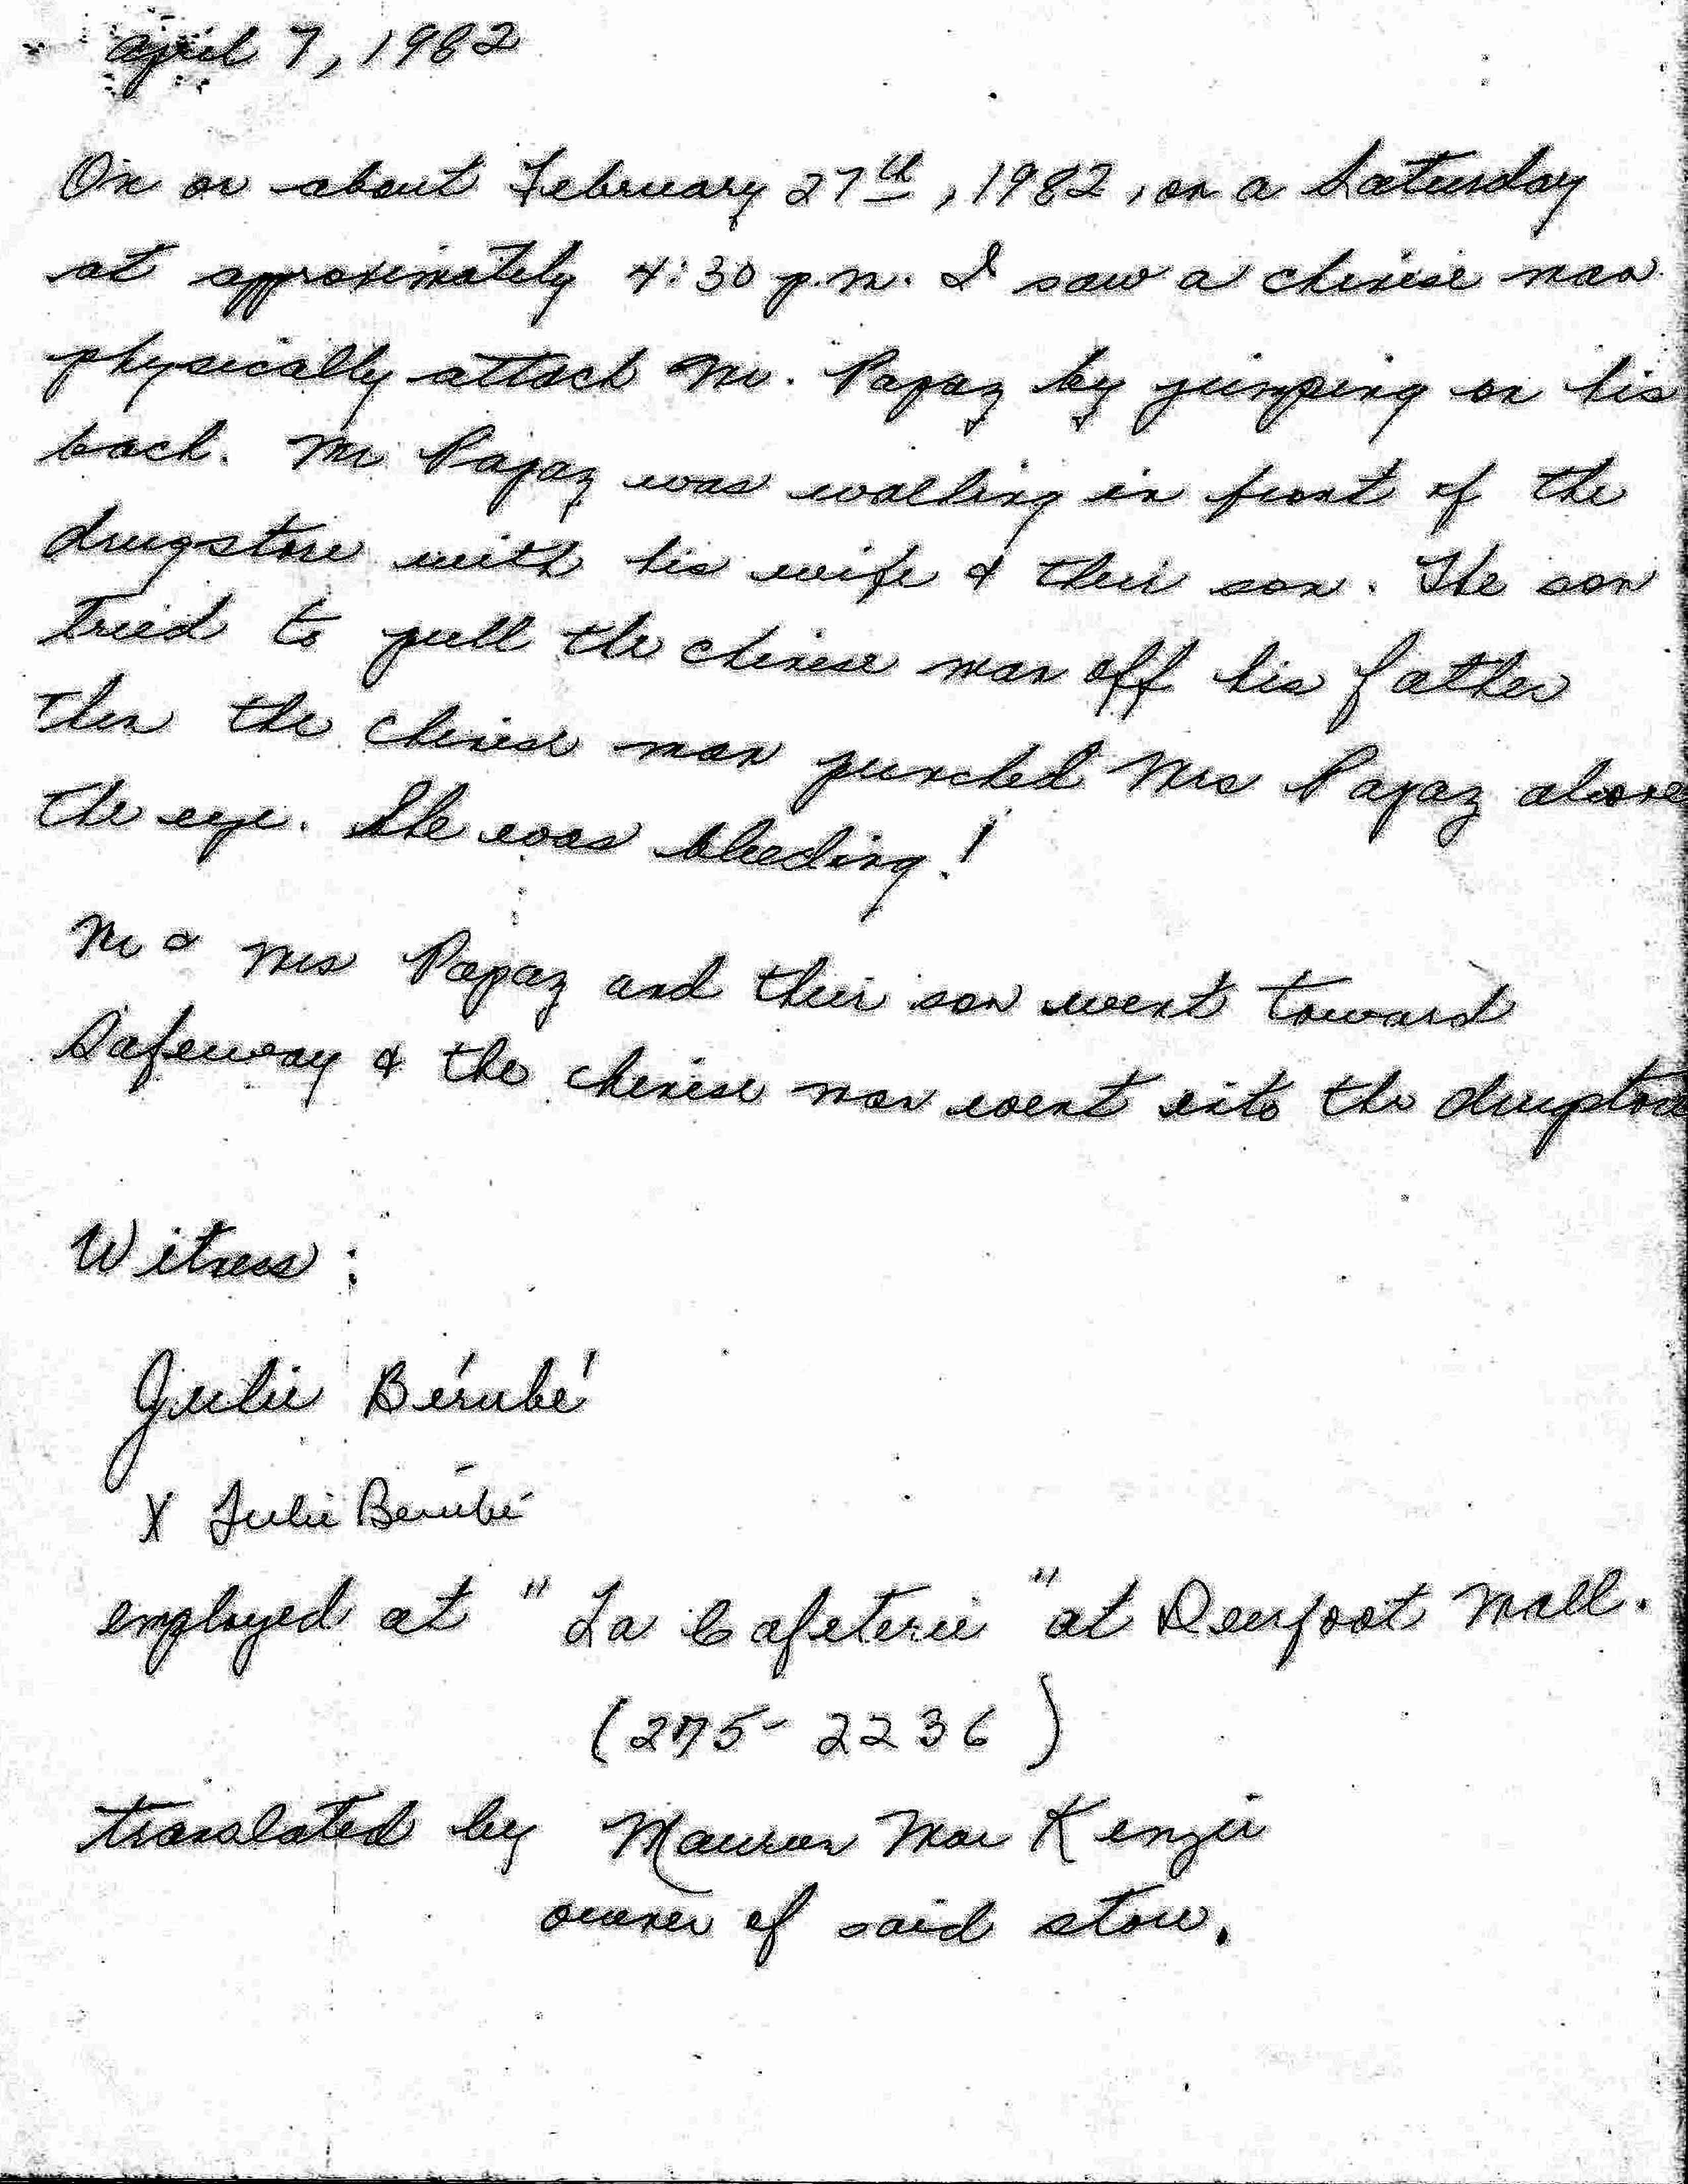 april 7, 1982
On or about February 27th, 1982, on a Saturday
at approximately 4:30 p.m. I saw a chinese man
physically attack Mr. Papaz by jumping on his
back. Mr Papaz was walking in front of the
drugstore with his wife & their son. The son
tried to pull the chinese man off his father
then the chinese man punched Mrs Papaz above
the eye. She was bleeding!
Mr & Mrs Papaz and their son went toward
Safeway & the chinese man went into the drugstore
Witness:
Julie Bérubé
X Julie Bérubé
employed at "La Cafeterie" at Deerfoot Mall.
(275-2236)
translated by Maureen MacKenzie
owner of said store.